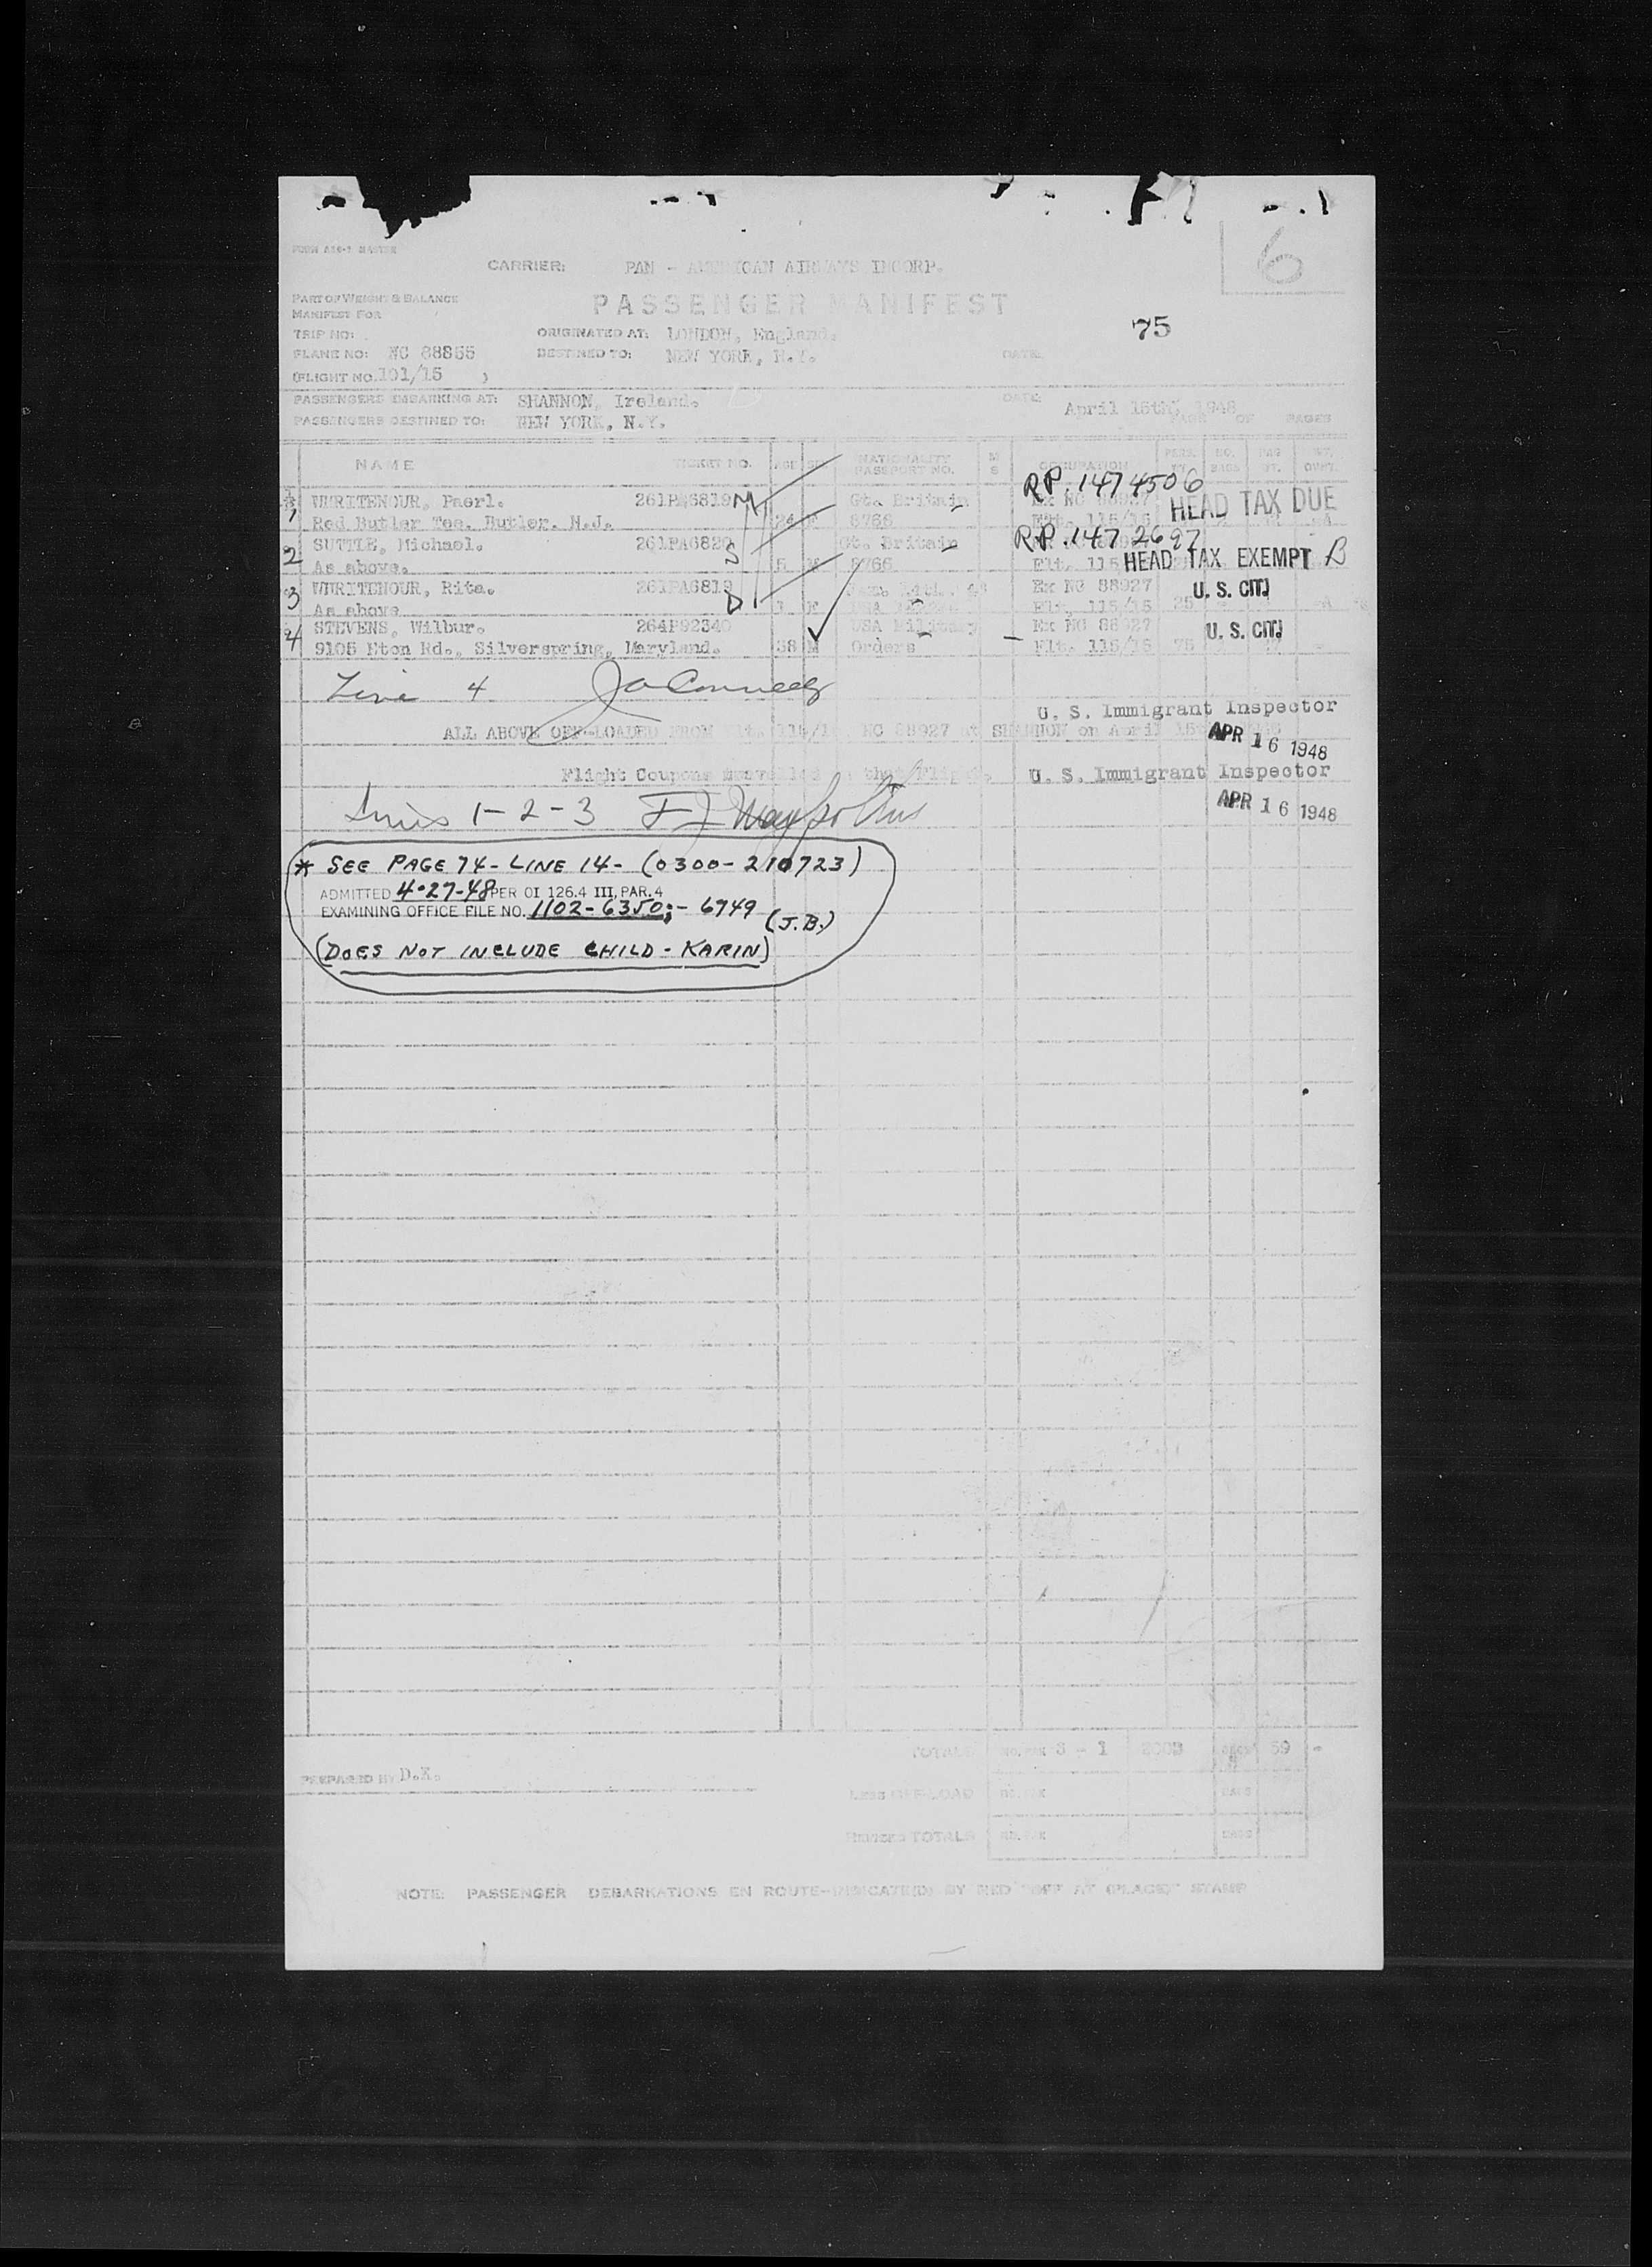 6
CARRIER: PAN - AMERICAN AIRWAYS INCORP.
PART OF WEIGHT & BALANCE
MANIFEST FOR
PASSENGER MANIFEST
75
TRIP NO:
ORIGINATED AT: LONDON, England.
PLANE NO: NC 88855
DESTINED TO: NEW YORK, N.Y.
DATE:
(FLIGHT NO. 101/15 )
PASSENGERS EMBARKING AT: SHANNON, Ireland.
DATE: April 15th, 1948
PASSENGERS DESTINED TO: NEW YORK, N.Y.
PAGE OF PAGES
NAME TICKET NO. AGE SEX NATIONALITY PASSPORT NO. M S OCCUPATION PERS. WT. NO. BAGS BAG WT.
1 WURITENOUR, Paerl. 261PA6819 M Gt. Britain RP. 1474506 HEAD TAX DUE
Red Butler Tee. Butler. N.J. 24 F 8766 Flt. 115/15
2 SUTTLE, Michael. 261PA6820 S Gt. Britain RP. 1472697
As above. 5 M 8766 Flt. 115 HEAD TAX EXEMPT B
3 WURITENOUR, Rita. 261PA6819 D Ex NC 88927 U. S. CIT.
As above Flt. 115/15 25
4 STEVENS, Wilbur. 264P92340 USA Military Ex NC 88927 U. S. CIT.
9105 Eton Rd., Silverspring, Maryland. 38 M Orders Flt. 115/15 75
Line 4
U. S. Immigrant Inspector
ALL ABOVE OFF-LOADED FROM Flt. 115/15 NC 88927 at SHANNON on April 15th
APR 16 1948
Flight Coupons that Flight.
U. S. Immigrant Inspector
APR 16 1948
Lines 1-2-3
* SEE PAGE 74 - LINE 14 - (0300-210723)
ADMITTED 4-27-48 PER OI 126.4 III, PAR. 4
EXAMINING OFFICE FILE NO. 1102-6350; - 6749
(J.B.)
(DOES NOT INCLUDE CHILD - KARIN)
TOTALS 3 - 1 59
PREPARED BY D.K.
LESS OFF-LOAD
REVISED TOTALS
NOTE: PASSENGER DEBARKATIONS EN ROUTE-INDICATED BY RED "OFF AT (PLACE)" STAMP